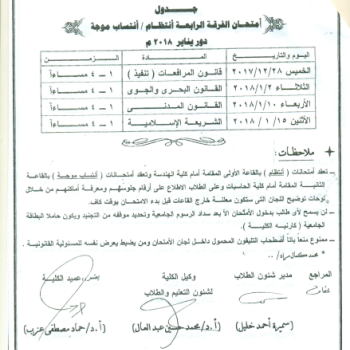 جـــدول
أمتحان الفرقة الرابعة أنتظام / أنتساب موجة
دور يناير ٢٠١٨ م
اليوم والتاريخ المـــادة الـــزمـــن
الخميس ٢٠١٧/١٢/٢٨ قانون المرافعات ( تنفيذ ) ١ - ٤ مساءاً
الثلاثاء ٢٠١٨/١/٢ القانون البحرى والجوى ١ - ٤ مساءاً
الأربعاء ٢٠١٨/١/١٠ القانون المدنى ١ - ٤ مساءاً
الأثنين ٢٠١٨/١/١٥ الشريعة الإسلامية ١ - ٤ مساءاً
ملاحظات :
ــ تعقد أمتحانات ( أنتظام ) بالقاعة الأولى المقامة أمام كلية الهندسة وتعقد أمتحانات ( أنتساب موجة ) بالقاعة
الثانية المقامة أمام كلية الحاسبات وعلى الطلاب الاطلاع على أرقام جلوسهم ومعرفة أماكنهم من خلال
لوحات توضيح اللجان التى ستكون معلقة خارج القاعات قبل بدء الامتحان بوقت كاف .
ــ لن يسمح لأى طالب بدخول الأمتحان الأ بعد سداد الرسوم الجامعية وتحديد موقفه من التجنيد ويكون حاملا البطاقة
الجامعية ( كارنيه الكلية ) .
ــ ممنوع منعاً باتاً أصطحاب التليفون المحمول داخل لجان الأمتحان ومن يضبط يعرض نفسه للمسئولية القانونية .
المراجع مدير شئون الطلاب وكيل الكلية عميد الكلية
لشئون التعليم والطلاب
( سميرة أحمد خليل ) ( أ.د/ محمد حسنى عبد العال ) ( أ.د/ حماد مصطفى عزب )